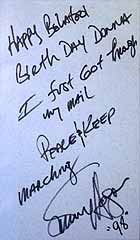 Happy Belated
Birth Day Donna
I Just Got through
my mail
Peace & Keep
marching
-98